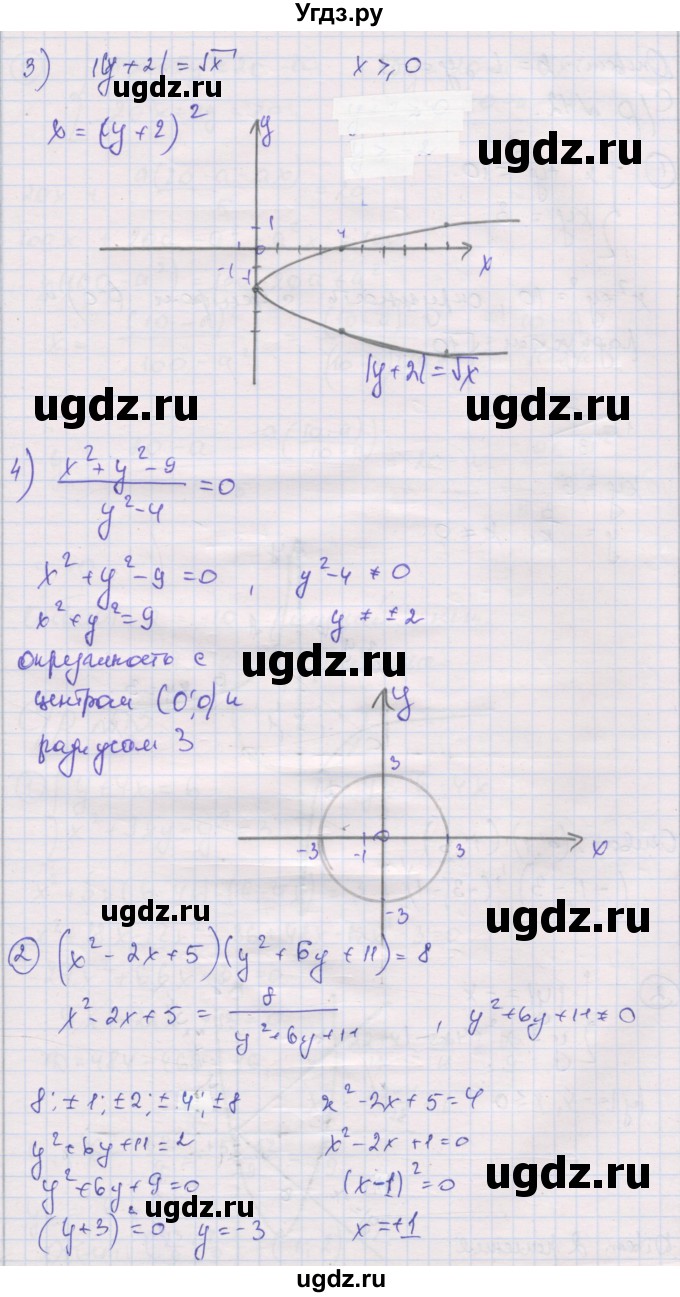 Угдз.ру
3) |y+2|=√x x ≥ 0
ugdz.ru
x = (y+2)²
ugdz.ru
y
1
4
0
x
-1
-1
|y+2|=√x
ugdz.ru ugdz.ru
4) (x²+y²-9)/(y²-4) = 0
x²+y²-9=0, y²-4 ≠ 0
x²+y²=9 y ≠ ±2
окружность с
ugdz.ru
центром (0;0) и
радиусом 3
y
3
-3 -1 0 3 x
-3
ugdz.ru ugdz.ru
2 (x²-2x+5)(y²+6y+11)=8
x²-2x+5 = 8/(y²+6y+11), y²+6y+11≠0
8; ±1; ±2; ±4; ±8 x²-2x+5=4
y²+6y+11=2 x²-2x+1=0
y²+6y+9=0 (x-1)²=0
ugdz.ru ugdz.ru
(y+3)²=0 y=-3 x=+1
ugdz.ru